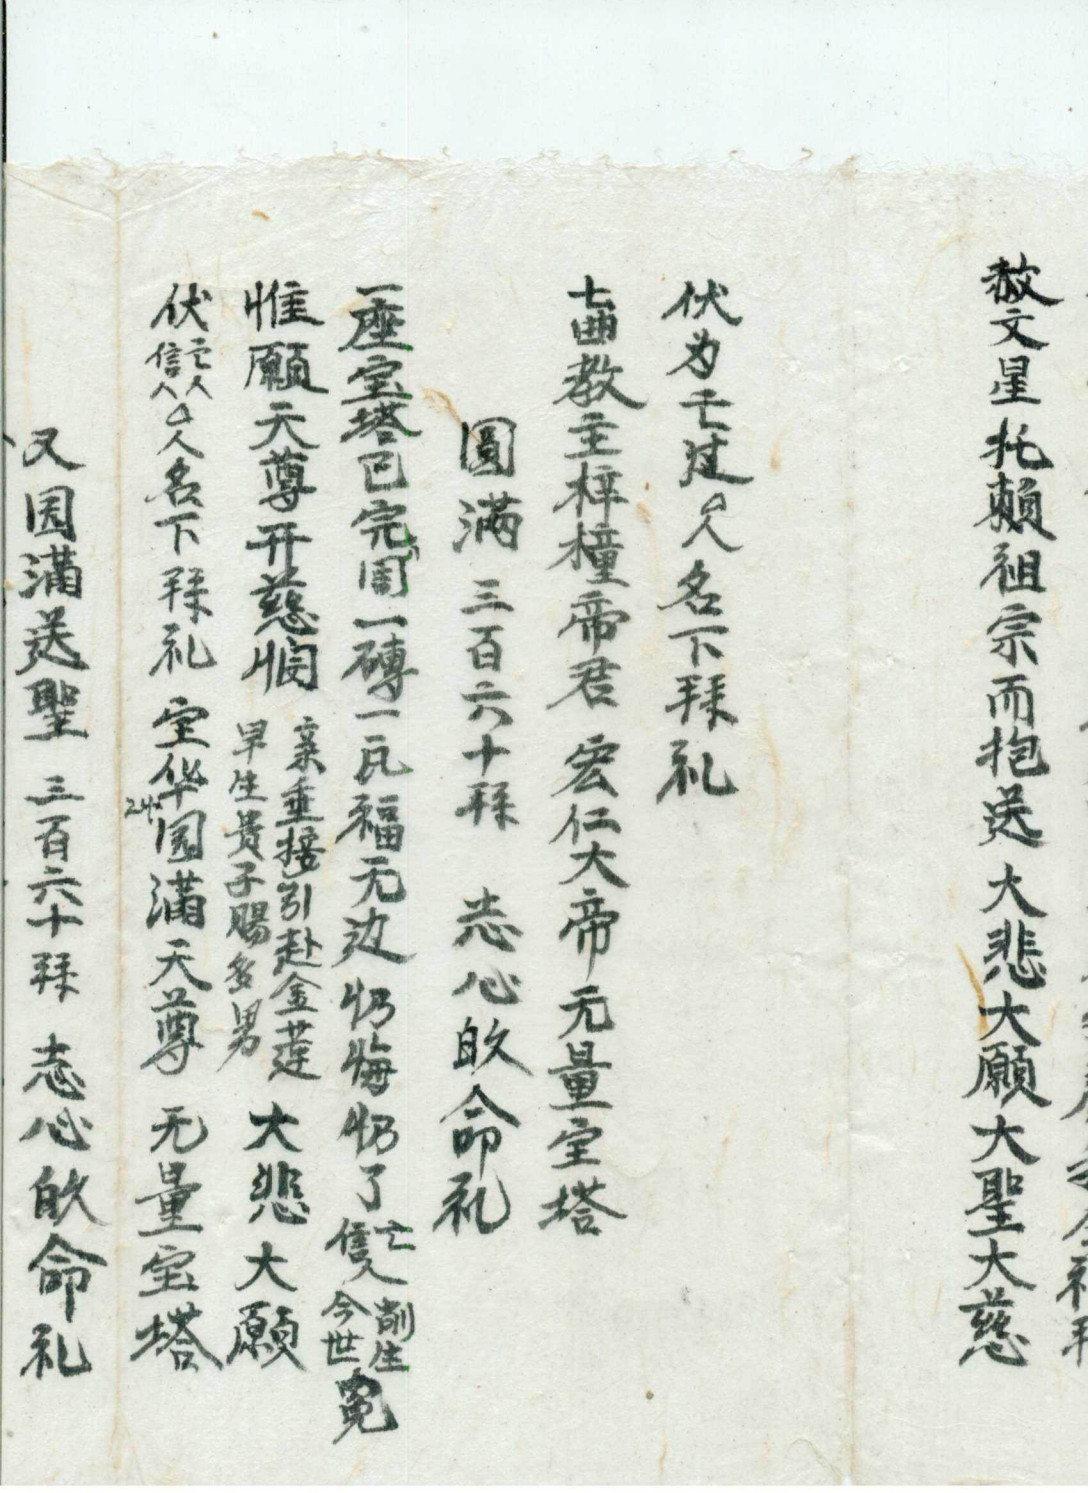 赦文星托賴祖宗而抱送 大悲大願大聖大慈
伏为亡过厶人名下拜礼
七曲教主梓橦帝君 宏仁大帝 无量宝塔
圓满 三百六十拜 志心皈命礼
一座宝塔已完周一磚一瓦福无边 忉悔忉了 亡信人 前生今世冤
惟願天尊开慈悯 亲垂接引赴金莲 早生贵子賜多男 大悲大願
伏 亡人信人 厶人名下拜礼 宝华园满天尊 无量宝塔
又园满送聖 三百六十拜 志心皈命礼